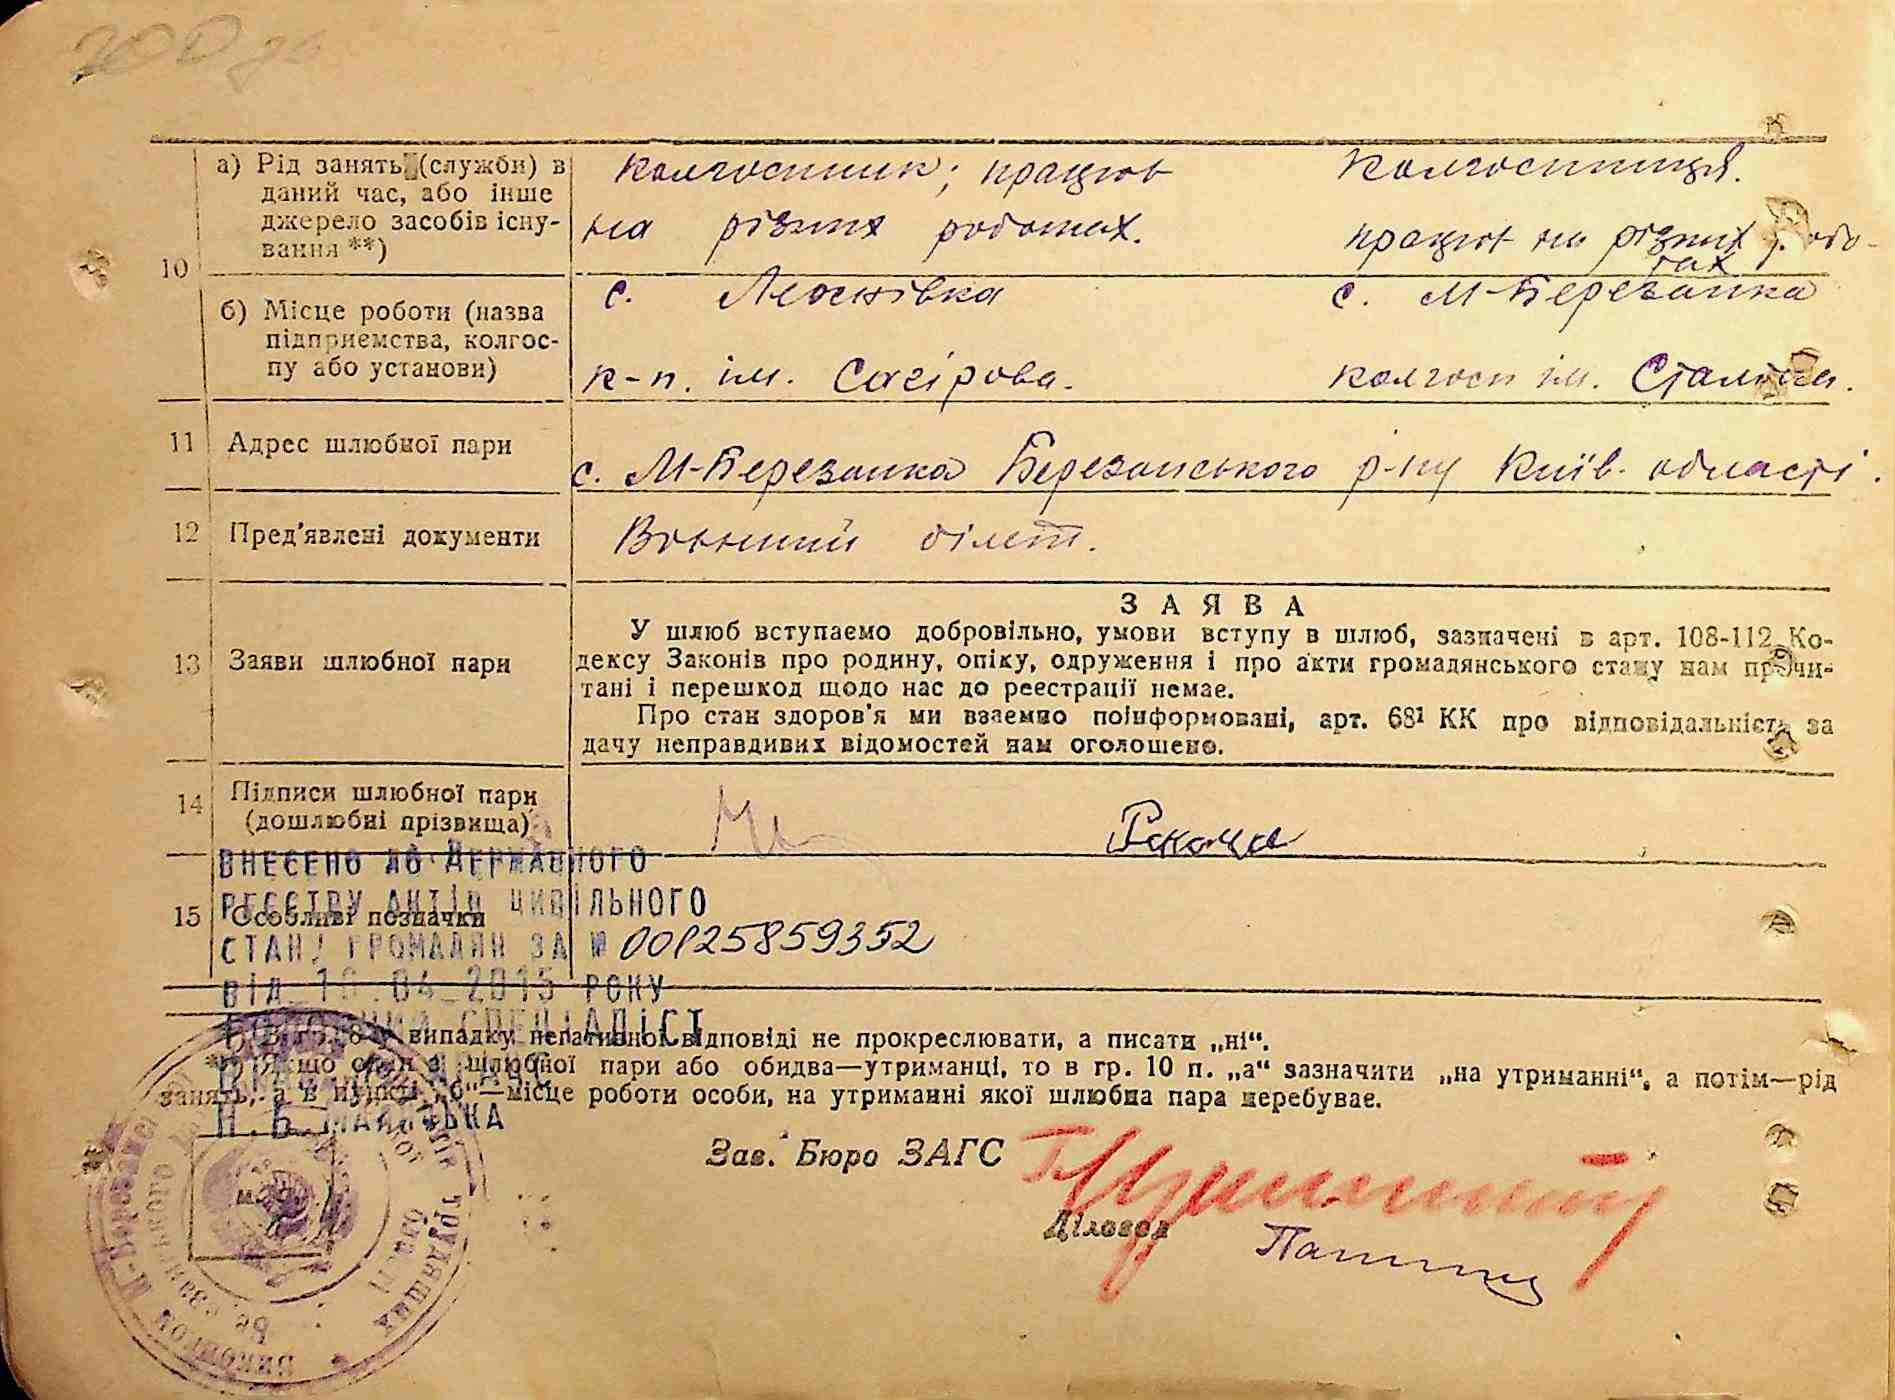 10
а) Рід занять (служби) в
даний час, або інше
джерело засобів існу-
вання **)
колгоспник; працює
на різних роботах.
Колгоспниця.
працює на різних робо-
тах
б) Місце роботи (назва
підприємства, колгос-
пу або установи)
с. Леонівка
к-п. ім. Сагірова.
с. М-Березанка
колгосп ім. Сталіна.
11 Адрес шлюбної пари
с. М-Березанка Березанського р-ну Київ. області.
12 Пред'явлені документи
Воєнний білет.
ЗАЯВА
13 Заяви шлюбної пари
У шлюб вступаємо добровільно, умови вступу в шлюб, зазначені в арт. 108-112 Ко-
дексу Законів про родину, опіку, одруження і про акти громадянського стану нам прочи-
тані і перешкод щодо нас до реєстрації немає.
Про стан здоров'я ми взаємно поінформовані, арт. 68¹ КК про відповідальність за
дачу неправдивих відомостей нам оголошено.
14 Підписи шлюбної пари
(дошлюбні прізвища)
ВНЕСЕНО ДО ДЕРЖАВНОГО
РЕЄСТРУ АКТІВ ЦИВІЛЬНОГО
15 Особливі позначки
СТАНУ ГРОМАДЯН ЗА № 00125859352
ВІД 10.04.2015 РОКУ
ГОЛОВНИЙ СПЕЦІАЛІСТ
у випадку негативної відповіді не прокреслювати, а писати „ні“.
**) Якщо один з шлюбної пари або обидва—утриманці, то в гр. 10 п. „а“ зазначити „на утриманні“, а потім—рід
занять, а в пункті „б“—місце роботи особи, на утриманні якої шлюбна пара перебуває.
Зав. Бюро ЗАГС
Діловод